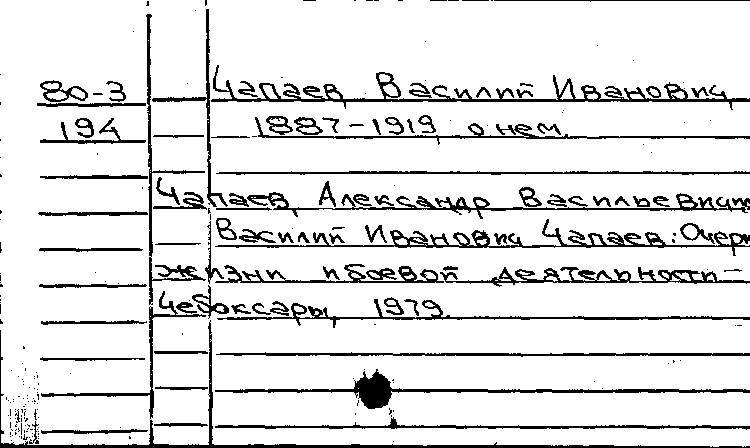 80-3 Чапаев, Василий Иванович,
194 1887-1919, о нем.
Чапаев, Александр Васильевич
Василий Иванович Чапаев: Очерк
жизни и боевой деятельности-
Чебоксары, 1979.